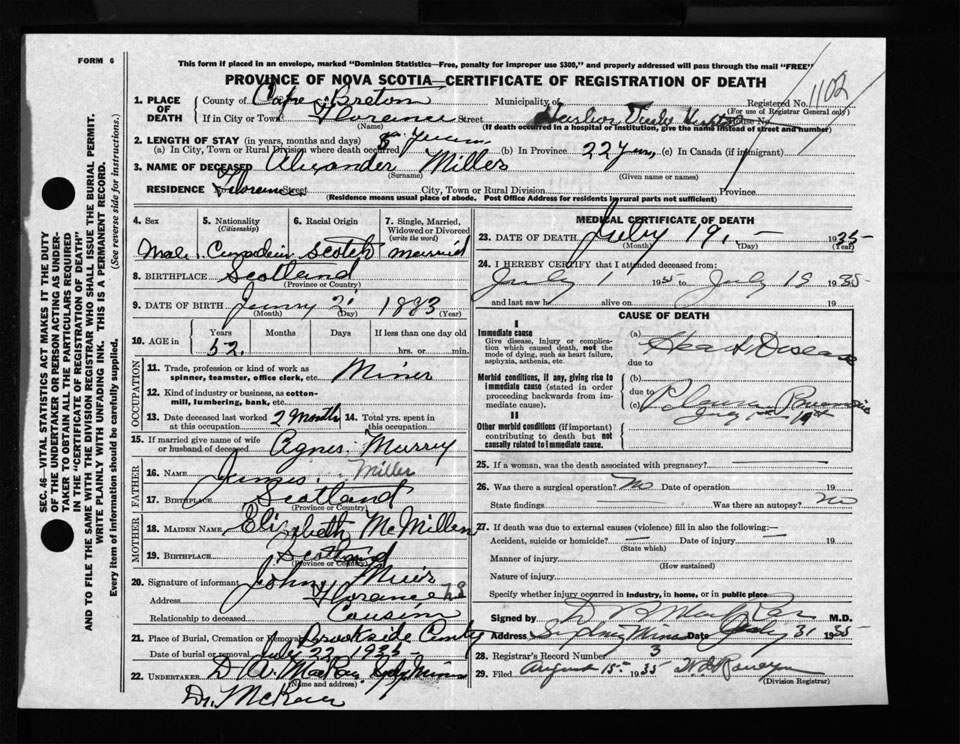 FORM 6
This form if placed in an envelope, marked "Dominion Statistics—Free, penalty for improper use $300," and properly addressed will pass through the mail "FREE"
PROVINCE OF NOVA SCOTIA—CERTIFICATE OF REGISTRATION OF DEATH
SEC. 46—VITAL STATISTICS ACT MAKES IT THE DUTY
OF THE UNDERTAKER OR PERSON ACTING AS UNDER-
TAKER TO OBTAIN ALL THE PARTICULARS REQUIRED
IN THE "CERTIFICATE OF REGISTRATION OF DEATH"
AND TO FILE THE SAME WITH THE DIVISION REGISTRAR WHO SHALL ISSUE THE BURIAL PERMIT.
WRITE PLAINLY WITH UNFADING INK. THIS IS A PERMANENT RECORD.
Every item of information should be carefully supplied. (See reverse side for instructions.)
1. PLACE OF DEATH
County of Cape Breton Municipality of Registered No. 1102
(For use of Registrar General only)
If in City or Town Florence Street House No.
(Name) (If death occurred in a hospital or institution, give the name instead of street and number)
2. LENGTH OF STAY (in years, months and days)
(a) In City, Town or Rural Division where death occurred (b) In Province 22 yrs, (c) In Canada (if immigrant)
3. NAME OF DECEASED Alexander Miller
(Surname) (Given name or names)
RESIDENCE Florence Street City, Town or Rural Division Province
(Residence means usual place of abode. Post Office Address for residents in rural parts not sufficient)
4. Sex
Male
5. Nationality
(Citizenship)
6. Racial Origin
Scotch
7. Single, Married, Widowed or Divorced
(write the word)
married
8. BIRTHPLACE Scotland
(Province or Country)
9. DATE OF BIRTH 2 1883
(Month) (Day) (Year)
10. AGE in Years Months Days If less than one day old
52. hrs. or min.
OCCUPATION
11. Trade, profession or kind of work as
spinner, teamster, office clerk, etc. Miner
12. Kind of industry or business, as cotton-
mill, lumbering, bank, etc.
13. Date deceased last worked at this occupation 2 Month
14. Total yrs. spent in this occupation
15. If married give name of wife
or husband of deceased Agnes Murry
FATHER
16. NAME James Miller
17. BIRTHPLACE Scotland
(Province or Country)
MOTHER
18. MAIDEN NAME Elizabeth McMillen
19. BIRTHPLACE Scotland
(Province or Country)
20. Signature of informant John Muir
Address Florence NS
Relationship to deceased Cousin
21. Place of Burial, Cremation or Removal Brookside
Date of burial or removal July 22 1935
22. UNDERTAKER
(Name and address)
MEDICAL CERTIFICATE OF DEATH
23. DATE OF DEATH July 19, 1935
(Month) (Day) (Year)
24. I HEREBY CERTIFY that I attended deceased from:
July 1 1935 to July 19 1935
and last saw h alive on 19
CAUSE OF DEATH
I
Immediate cause
Give disease, injury or complica-
tion which caused death, not the
mode of dying, such as heart failure,
asphyxia, asthenia, etc.
(a) Heart Disease
due to
Morbid conditions, if any, giving rise to
immediate cause (stated in order
proceeding backwards from im-
mediate cause).
(b)
due to
(c)
II
Other morbid conditions (if important)
contributing to death but not
causally related to immediate cause.
25. If a woman, was the death associated with pregnancy?
26. Was there a surgical operation? No Date of operation 19
State findings Was there an autopsy? no
27. If death was due to external causes (violence) fill in also the following:—
Accident, suicide or homicide? Date of injury 19
(State which)
Manner of injury
(How sustained)
Nature of injury
Specify whether injury occurred in industry, in home, or in public place
Signed by M.D.
Address Sydney Mines Date July 31 1935
28. Registrar's Record Number 3
29. Filed August 15 1935
(Division Registrar)